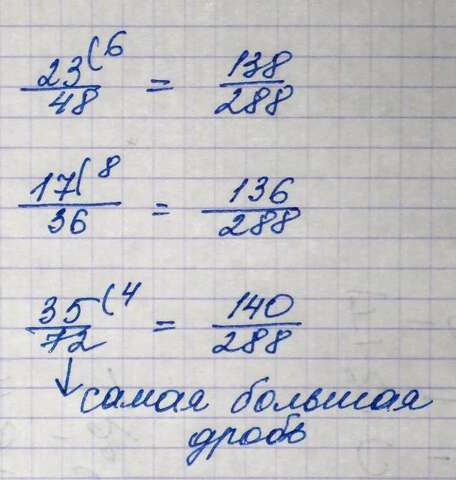 23(6
48
=
138
288
17(8
36
=
136
288
35(4
72
=
140
288
↓ самая большая
дробь